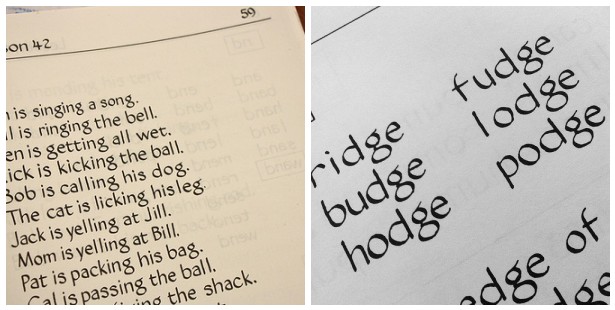 59
on 42
is singing a song.
is ringing the bell.
en is getting all wet.
ick is kicking the ball.
Bob is calling his dog.
The cat is licking his leg.
Jack is yelling at Jill.
Mom is yelling at Bill.
Pat is packing his bag.
Cal is passing the ball.
the shack.
fudge
lodge
podge
ridge
budge
hodge
edge of